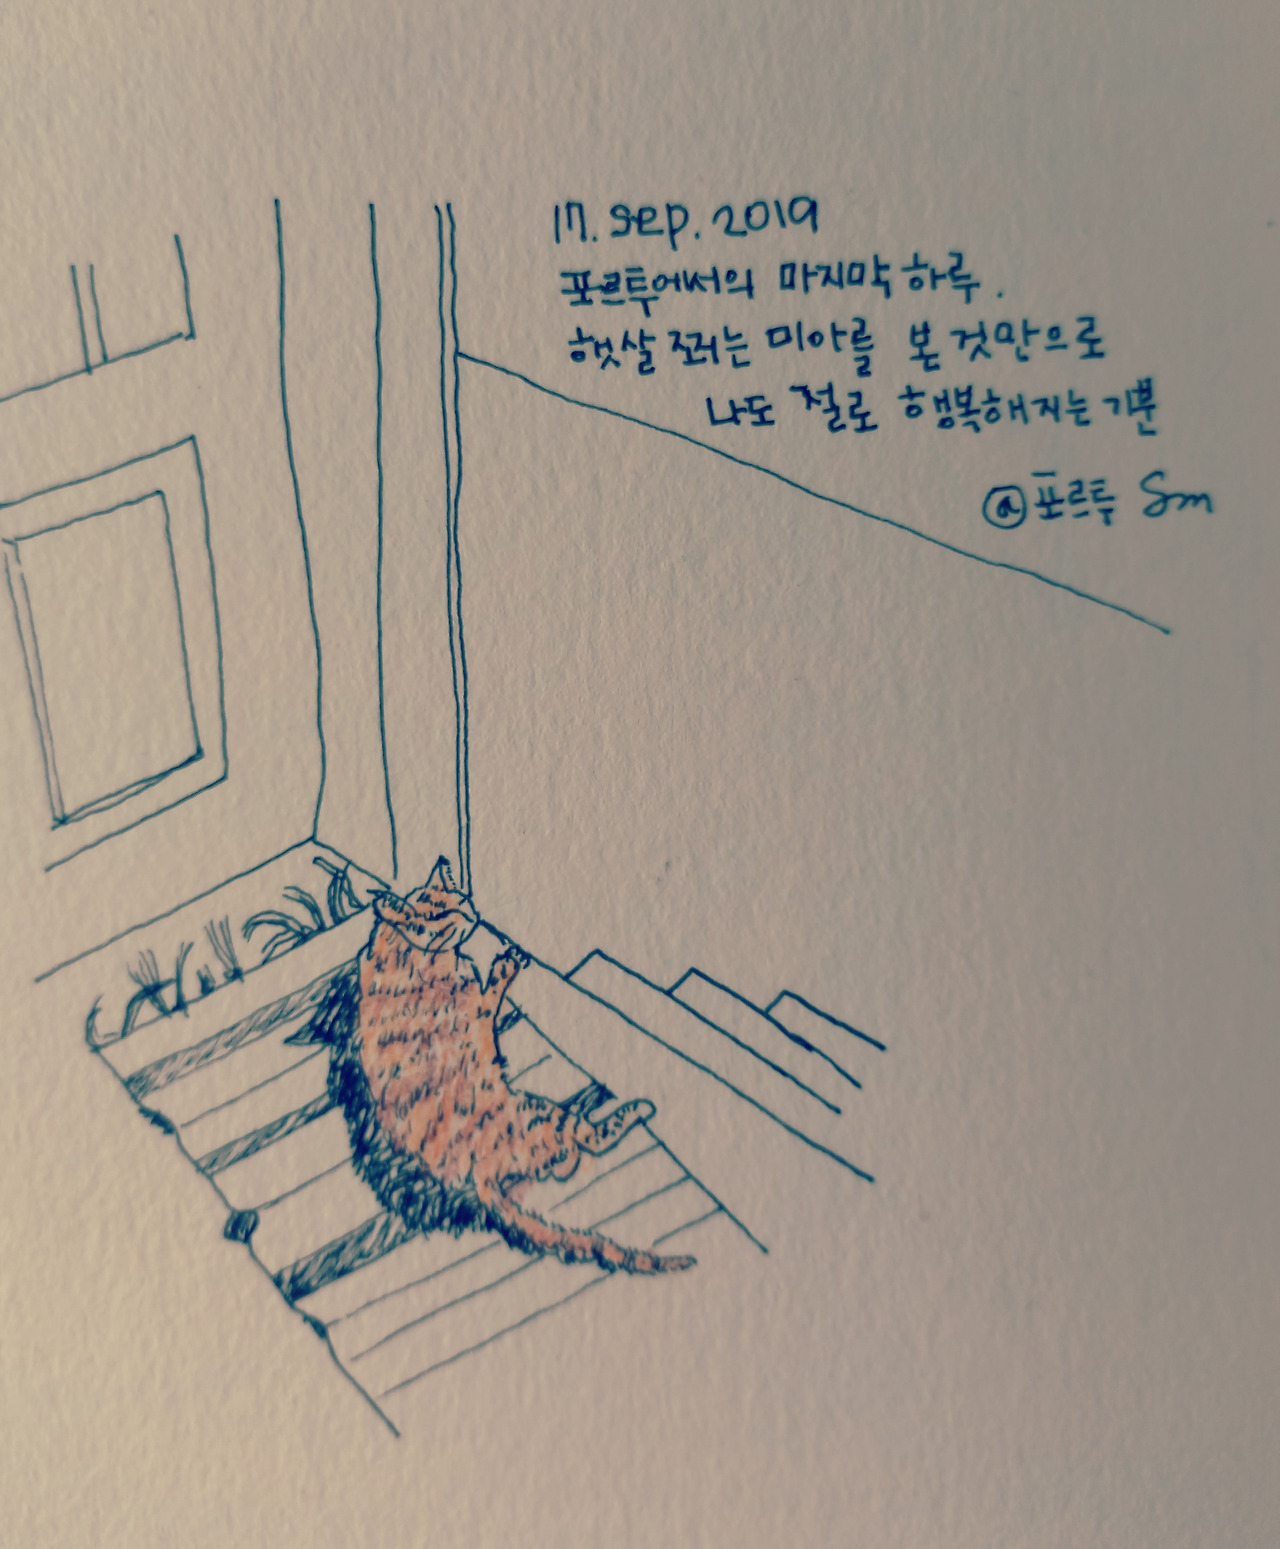 17. Sep. 2019
포르투에서의 마지막 하루.
햇살 쬐는 미아를 본 것만으로
나도 절로 행복해지는 기분
@포르투 Sm